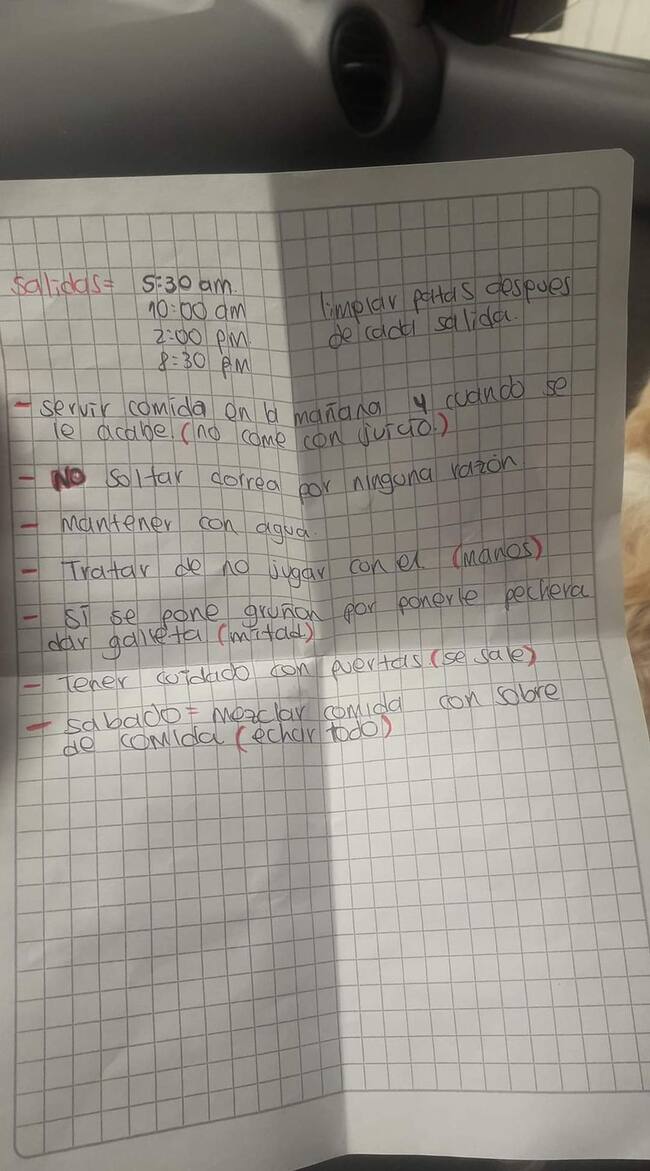 Salidas= 5:30 am.
10:00 am
2:00 PM.
8:30 PM
limpiar patas despues
de cada salida.
- servir comida en la mañana y cuando se
le acabe. (no come con juicio.)
- NO soltar correa por ninguna razón
- Mantener con agua.
- Tratar de no jugar con el (manos)
- Si se pone gruñon por ponerle pechera
dar galleta (mitad)
- Tener cuidado con puertas (se sale)
- sabado = mezclar comida con sobre
de comida (echar todo)